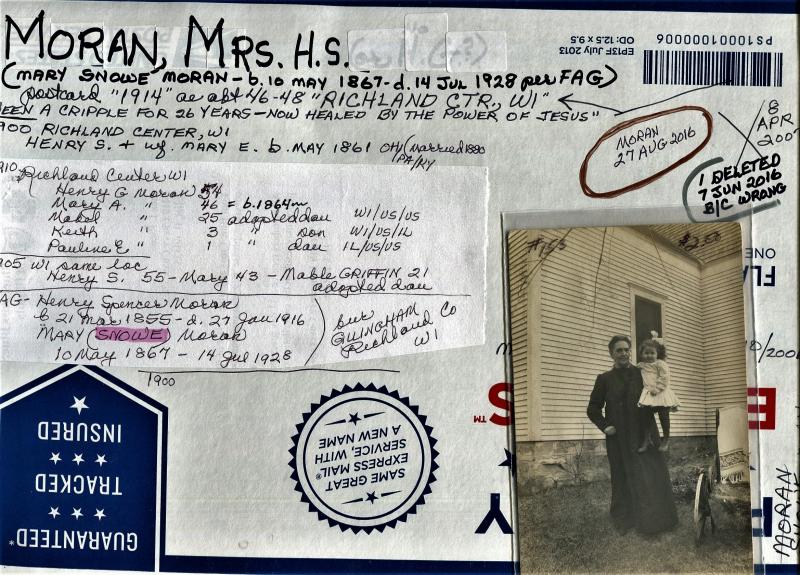 MORAN, MRS. H.S.
(MARY SNOWE MORAN - b. 10 MAY 1867 - d. 14 JUL 1928 per FAG)
postcard "1914" ae abt 46-48 "RICHLAND CTR., WI"
EEN A CRIPPLE FOR 26 YEARS - NOW HEALED BY THE POWER OF JESUS"
900 RICHLAND CENTER, WI
HENRY S. + wf. MARY E. b. MAY 1861 OH/PA/KY (married 1880
910 Richland Center WI
Henry G Moran 54
Mary A. " 46 = b. 1864
Mabel " 25 adopted dau WI/US/US
Keith " 3 " son WI/US/IL
Pauline E " 1 " dau IL/US/US
905 WI same loc
Henry S. 55 - Mary 43 - Mable GRIFFIN 21
adopted dau
AG - Henry Spencer Moran
b 21 Mar 1855 - d. 27 Jan 1916
MARY (SNOWE) Moran
10 May 1867 - 14 Jul 1928
bur
Richland Co
WI
1900
EP13F July 2013
OD: 12.5 x 9.5
PS10001000006
8
APR
200
MORAN
27 AUG 2016
1 DELETED
7 JUN 2016
B/C WRONG
$2.50
ONE
FLA
/200
E
S™
Y
MORAN
GUARANTEED*
TRACKED
INSURED
SAME GREAT
EXPRESS MAIL®
SERVICE, WITH
A NEW NAME